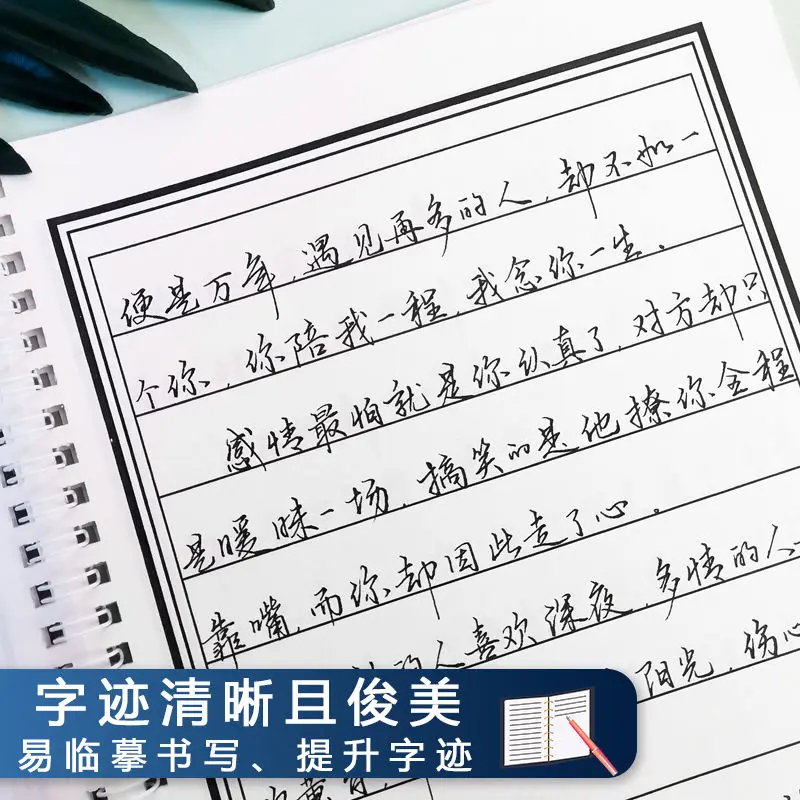 便是万年，遇见再多的人，却不如一
个你，你陪我一程，我念你一生。
感情最怕就是你认真了，对方却只
是暧昧一场，搞笑的是他撩你全程
靠嘴，而你却因此走了心。
的人喜欢深夜，多情的人
阳光，伤心
字迹清晰且俊美
易临摹书写、提升字迹